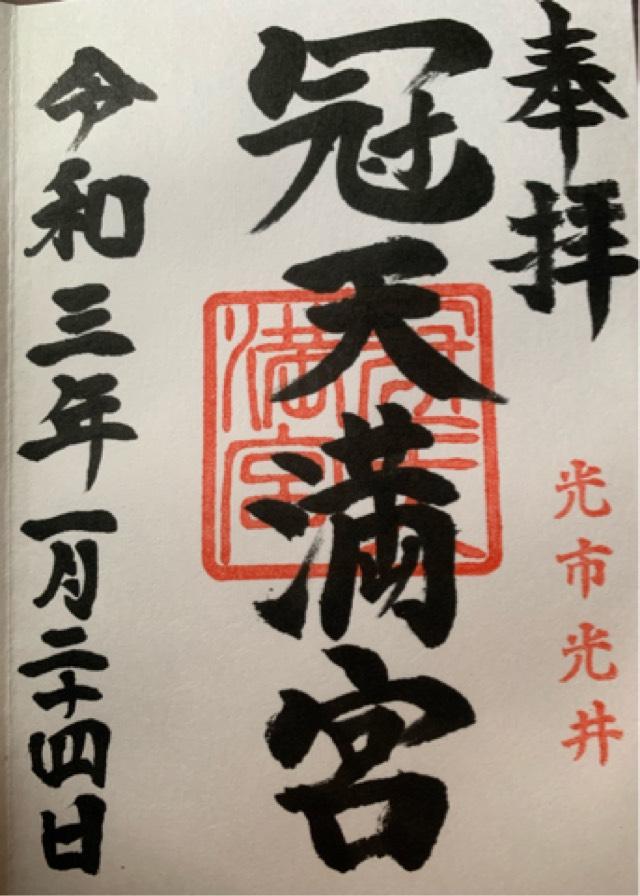 奉拝
光市光井
冠天満宮
冠天満宮
令和三年一月二十四日